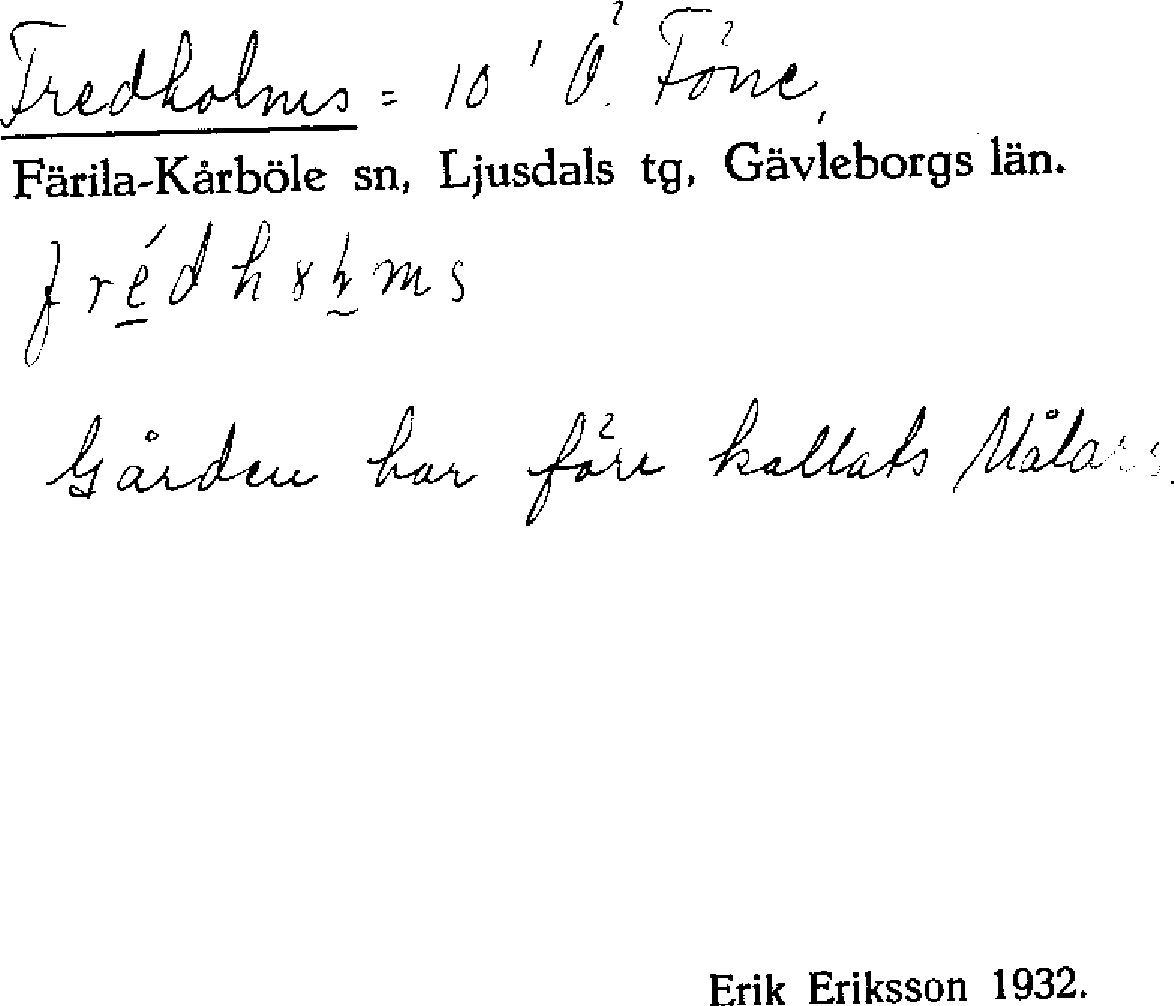 Fredholms = 10' Ö. Föne,
Färila-Kårböle sn, Ljusdals tg, Gävleborgs län.
Gården har förr kallats Målars.
Erik Eriksson 1932.